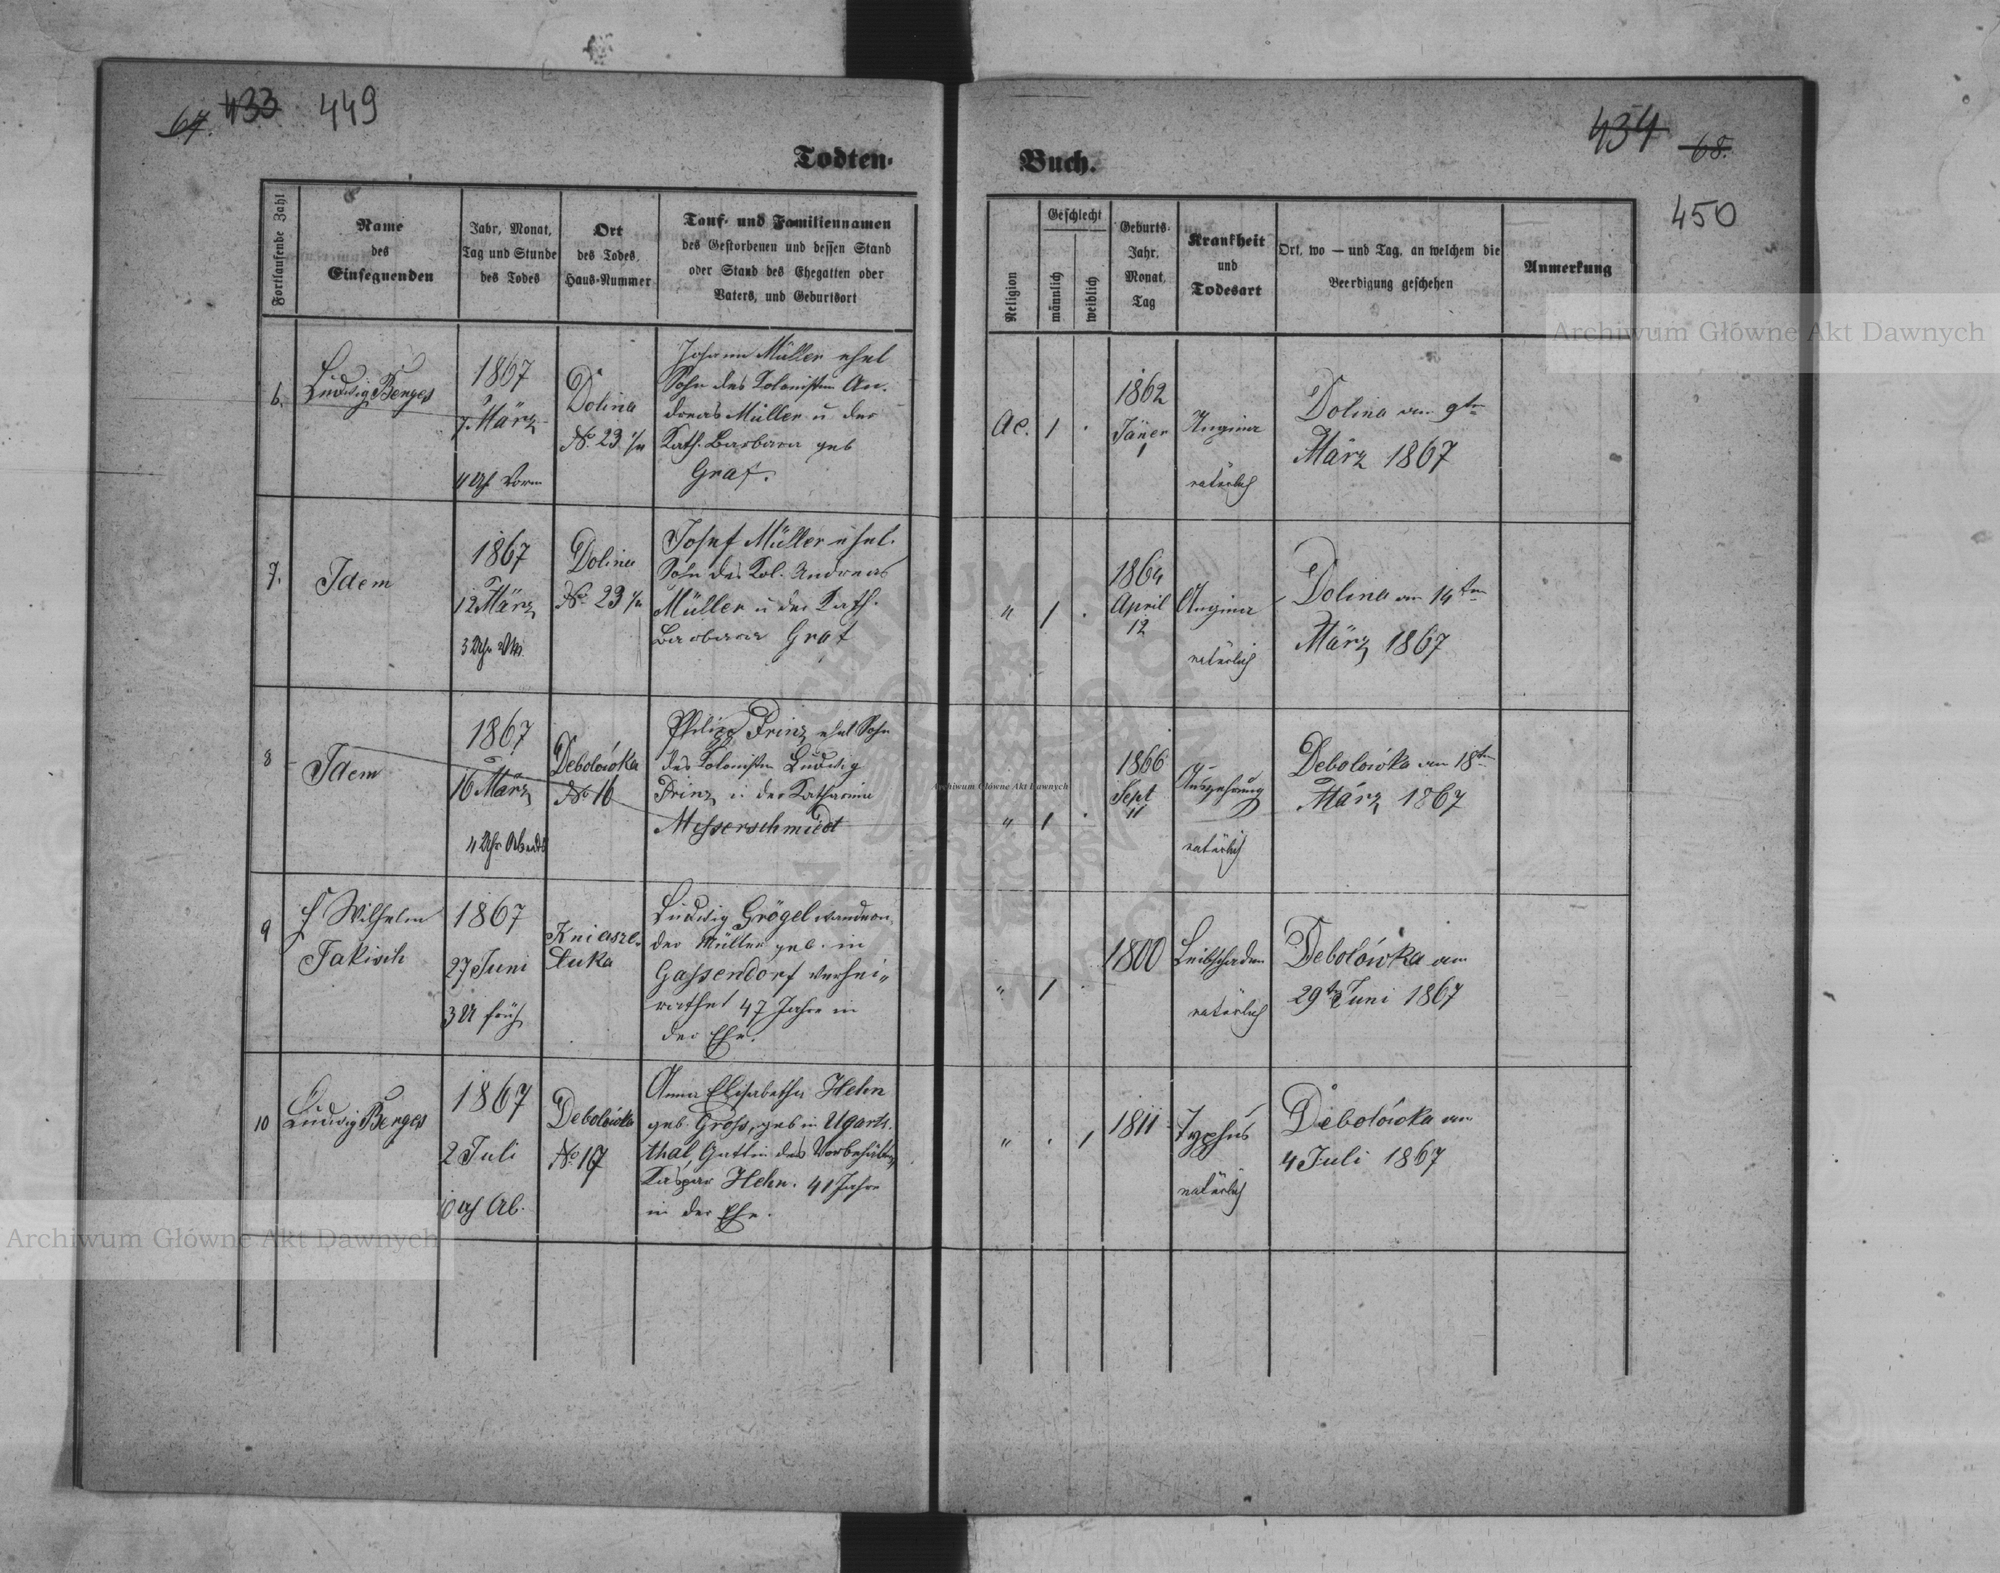 67. 433 449
434 68.
450
Todten-
Buch.
Fortlaufende Zahl
Name
des
Einsegnenden
Jahr, Monat,
Tag und Stunde
des Todes
Ort
des Todes,
Haus-Nummer
Tauf- und Familiennamen
des Gestorbenen und dessen Stand
oder Stand des Ehegatten oder
Vaters, und Geburtsort
Religion
Geschlecht
männlich
weiblich
Geburts-
Jahr,
Monat,
Tag
Krankheit
und
Todesart
Ort, wo — und Tag, an welchem die
Beerdigung geschehen
Anmerkung
6.
Ludwig Berges
1867
7. März
4 Uhr Vorm
Dolina
No 23
Johann Müller ehel
Sohn des Kolonisten An-
dreas Müller u der
Kath. Barbara geb
Graf.
Ae. 1 .
1862
Jäner
1
Angina
natürlich
Dolina am 9ten
März 1867
7.
Idem
1867
12 März
3 Uhr
Dolina
No 23
Josef Müller ehel.
Sohn des Kol. Andreas
Müller u der Kath.
Barbara Graf
" 1 .
1864
April
12
Angina
natürlich
Dolina am 14ten
März 1867
8
Idem
1867
16 März
4 Uhr Abends
Debolówka
No 16
Philipp Prinz ehel Sohn
des Kolonisten Ludwig
Prinz u der Katharina
Messerschmiedt
" 1 .
1866
Sept
11
Auszehrung
natürlich
Debolówka am 18ten
März 1867
9
Wilhelm
Jakisch
1867
27 Juni
3 U früh
Kniasze-
Łuka
Ludwig Grögel wandern-
der Müller geb. in
Gassendorf verhei-
rathet 47 Jahre in
der Ehe.
" 1 .
1800
Leibschaden
natürlich
Debolówka am
29ten Juni 1867
10
Ludwig Berges
1867
2 Juli
10 Uh Ab.
Debolówka
No 17
Anna Elisabetha Hehn
geb. Gross, geb in Ugarts-
thal Gattin des
Kaspar Hehn. 41 Jahre
in der Ehe.
" . 1
1811
Typhus
natürlich
Debolówka am
4 Juli 1867
Archiwum Główne Akt Dawnych
Archiwum Główne Akt Dawnych
Archiwum Główne Akt Dawnych